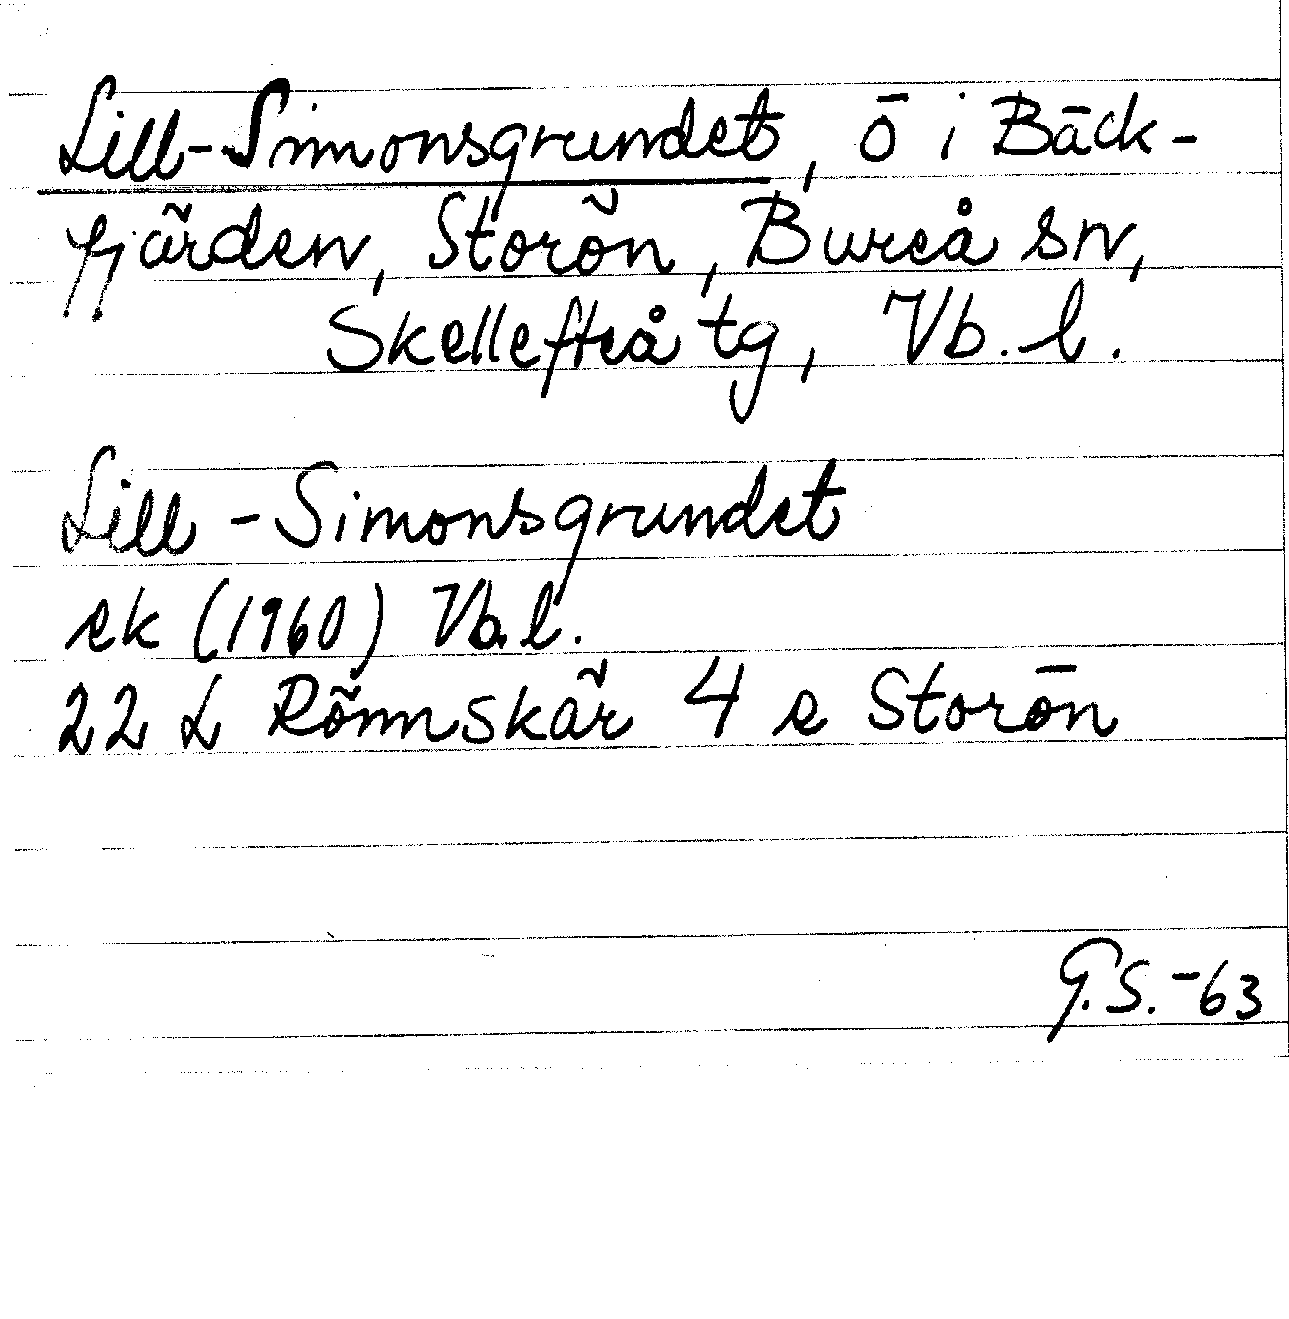 Lill-Simonsgrundet, ö i Bäck-
fjärden, Storön, Bureå sn,
Skellefteå tg, Vb. l.
Lill-Simonsgrundet
ek (1960) Vb. l.
22 L Rönnskär 4 e Storön
G.S. -63